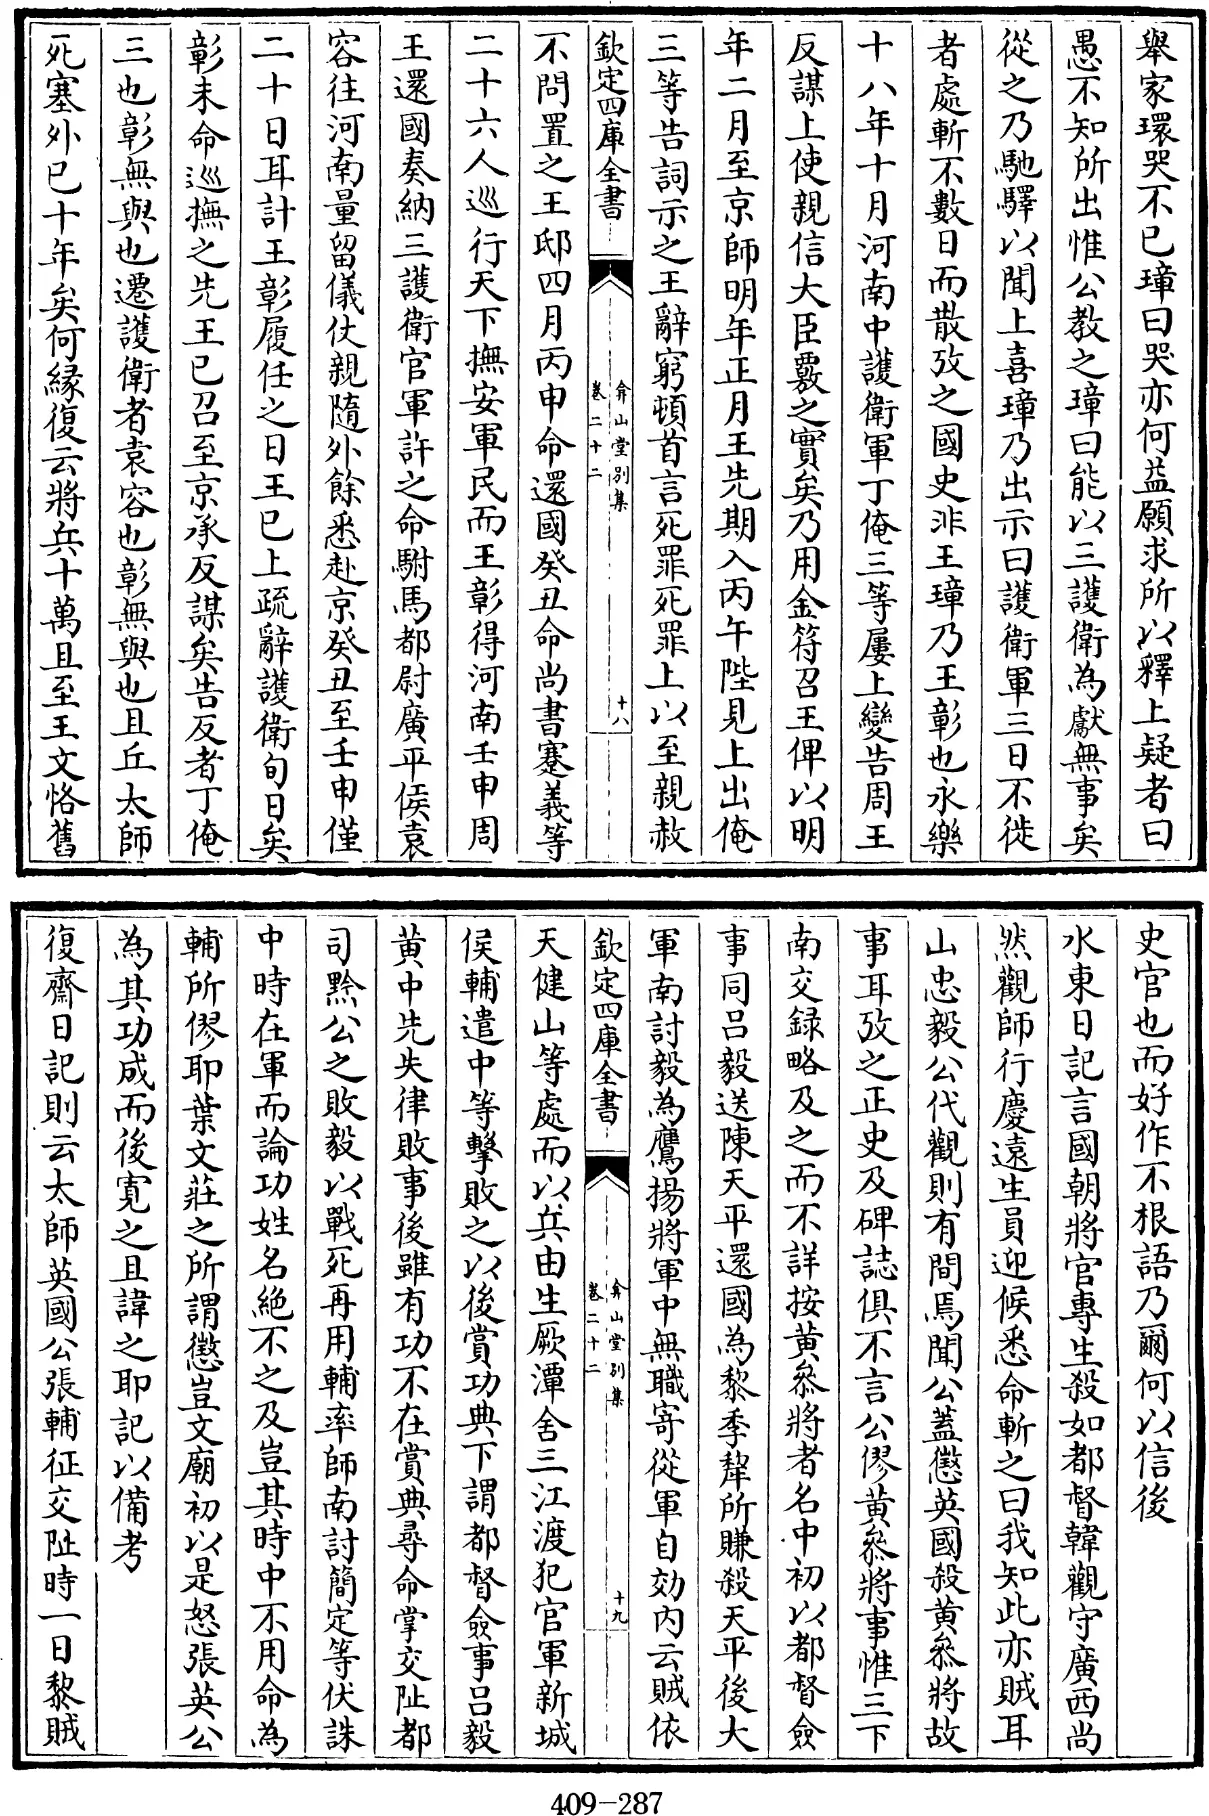 舉家環哭不已璋曰哭亦何益願求所以釋上疑者曰
愚不知所出惟公教之璋曰能以三護衛為獻無事矣
從之乃馳驛以聞上喜璋乃出示曰護衛軍三日不徙
者處斬不數日而散攷之國史非王璋乃王彰也永樂
十八年十月河南中護衛軍丁俺三等屢上變告周王
反謀上使親信大臣覈之實矣乃用金符召王俾以明
年二月至京師明年正月王先期入丙午陛見上出俺
三等告詞示之王辭窮頓首言死罪死罪上以至親赦
欽定四庫全書
弇山堂別集
卷二十二
十八
不問置之王邸四月丙申命還國癸丑命尚書蹇義等
二十六人巡行天下撫安軍民而王彰得河南壬申周
王還國奏納三護衛官軍許之命駙馬都尉廣平侯袁
容往河南量留儀仗親隨外餘悉赴京癸丑至壬申僅
二十日耳計王彰履任之日王已上疏辭護衛旬日矣
彰未命巡撫之先王已召至京承反謀矣告反者丁俺
三也彰無與也遷護衛者袁容也彰無與也且丘太師
死塞外已十年矣何緣復云將兵十萬且至王文恪舊
史官也而好作不根語乃爾何以信後
水東日記言國朝將官專生殺如都督韓觀守廣西尚
然觀師行慶遠生員迎候悉命斬之曰我知此亦賊耳
山忠毅公代觀則有間焉聞公蓋懲英國殺黄叅將故
事耳攷之正史及碑誌俱不言公僇黄叅將事惟三下
南交録略及之而不詳按黄叅將者名中初以都督僉
事同吕毅送陳天平還國為黎季犛所賺殺天平後大
軍南討毅為鷹揚將軍中無職寄從軍自効内云賊依
欽定四庫全書
弇山堂別集
卷二十二
十九
天健山等處而以兵由生厥潭舍三江渡犯官軍新城
侯輔遣中等擊敗之以後賞功典下謂都督僉事吕毅
黄中先失律敗事後雖有功不在賞典尋命掌交阯都
司黔公之敗毅以戰死再用輔率師南討簡定等伏誅
中時在軍而論功姓名絶不之及豈其時中不用命為
輔所僇耶葉文莊之所謂懲豈文廟初以是怒張英公
為其功成而後寛之且諱之耶記以備考
復齋日記則云太師英國公張輔征交阯時一日黎賊
409-287